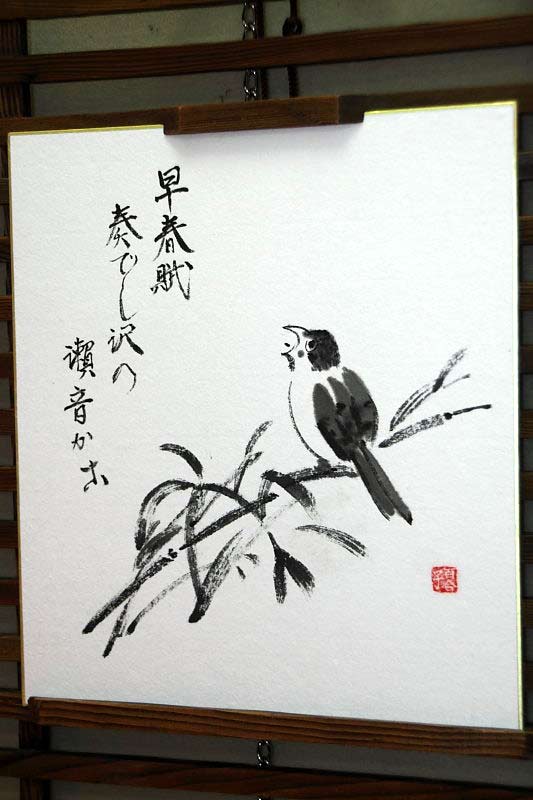 早春賦
奏でし沢の
瀬音かな